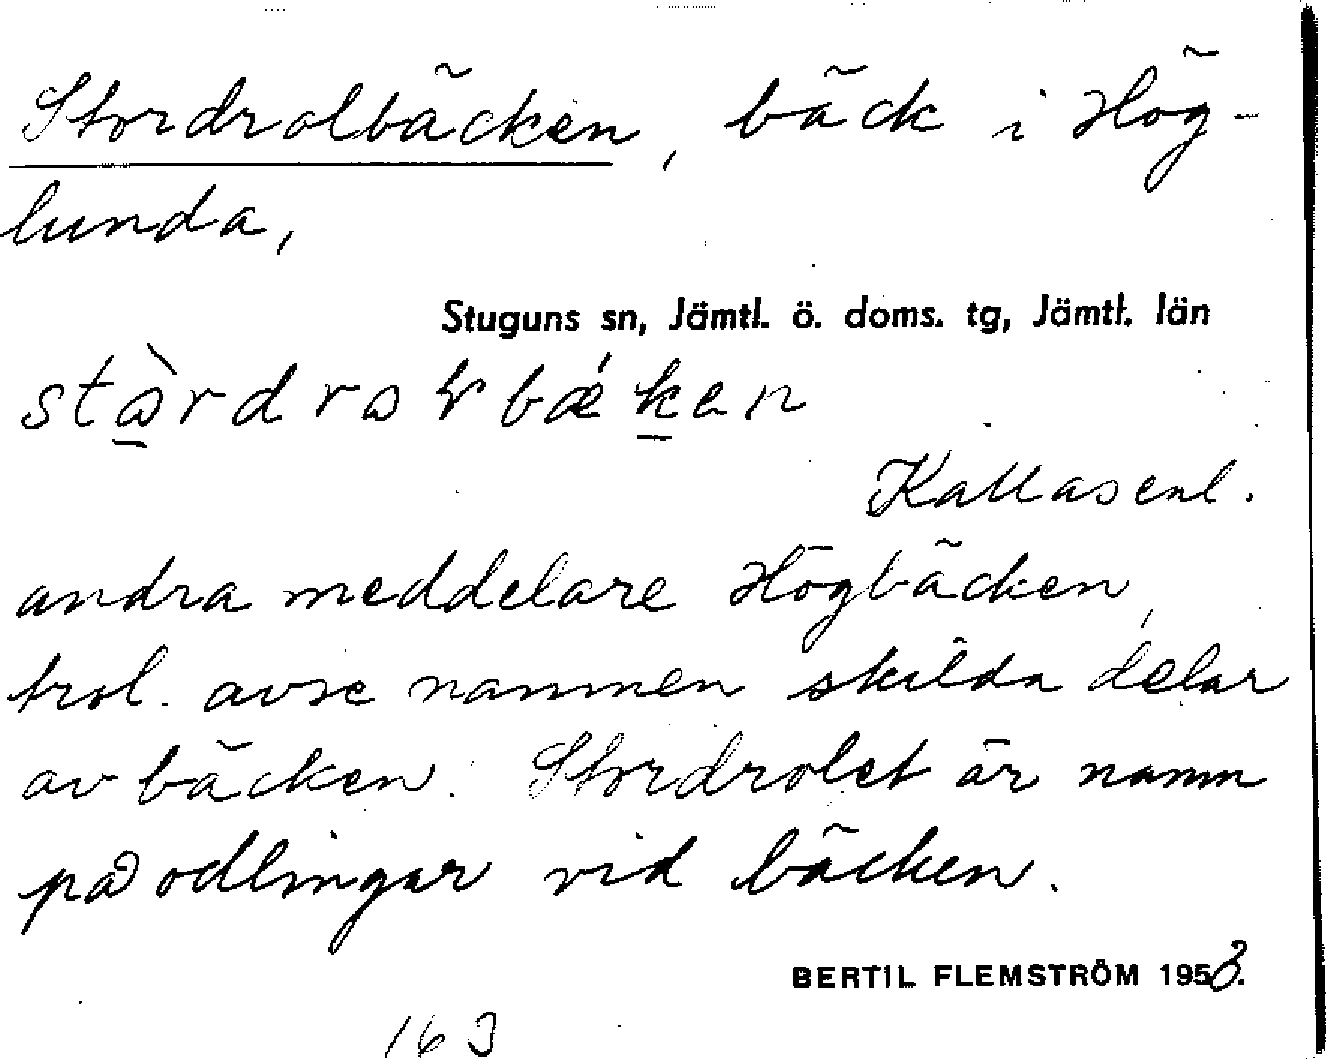 Stordrolbäcken, bäck i Hög-
lunda,
Stuguns sn, Jämtl. ö. doms. tg, Jämtl. län
Kallas enl.
andra meddelare Högbäcken,
trol. avse namnen skilda delar
av bäcken. Stordrolet är namn
på odlingar vid bäcken.
BERTIL FLEMSTRÖM 195
163